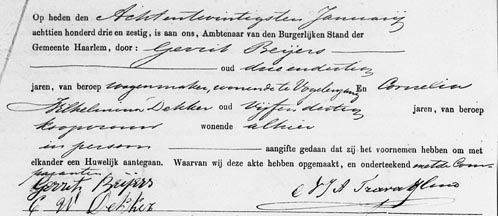 Op heden den Achtentwintigsten Januarij
achttien honderd drie en zestig, is aan ons, Ambtenaar van den Burgerlijken Stand der
Gemeente Haarlem, door: Gerrit Beijers
oud drieendertig
jaren, van beroep wagenmaker, wonende te Vogelenzang En Cornelia
Wilhelmina Dekker oud vijfendertig jaren, van beroep
koopvrouw wonende alhier
in persoon aangifte gedaan dat zij het voornemen hebben om
elkander een Huwelijk aantegaan. Waarvan wij deze akte hebben opgemaakt, en onderteekend met de Com-
paranten
Gerrit Beijers
C W Dekker